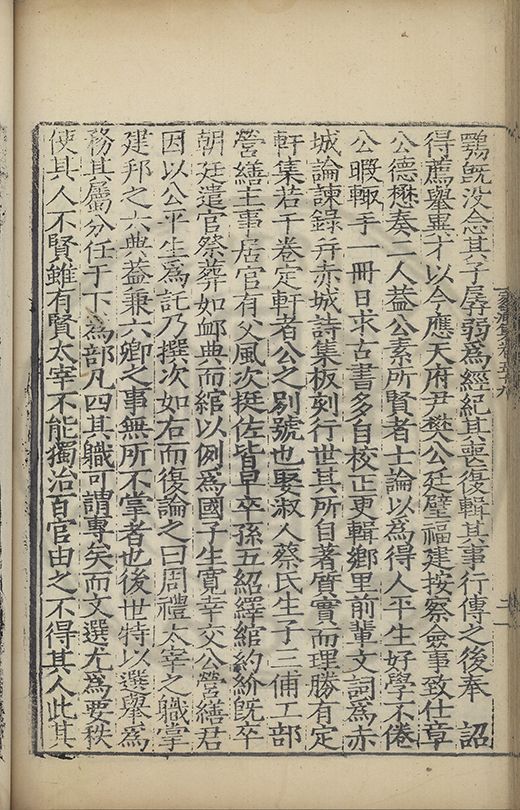 鶚既没念其子孱弱爲經紀其喪復輯其事行傳之後奉 詔
得薦舉異才以今應天府尹樊公廷璧福建按察僉事致仕章
公德懋奏二人葢公素所賢者士論以爲得人平生好學不倦
公暇輙手一冊日求古書多自校正更輯鄉里前輩文詞爲赤
城論諫錄并赤城詩集板刻行世其所自著質實而理勝有定
軒集若干卷定軒者公之别號也娶淑人蔡氏生子三俌工部
營繕主事居官有父風次挺佐皆早卒孫五紹繹綰約紒既卒
朝廷遣官祭葬如䘏典而綰以例爲國子生寛幸父公營繕君
因以公平生爲託乃撰次如右而復論之曰周禮太宰之職掌
建邦之六典葢兼六卿之事無所不掌者也後世特以選舉爲
務其屬分任于下爲部凡四其職可謂專矣而文選尤爲要秩
使其人不賢雖有賢太宰不能獨治百官由之不得其人此其